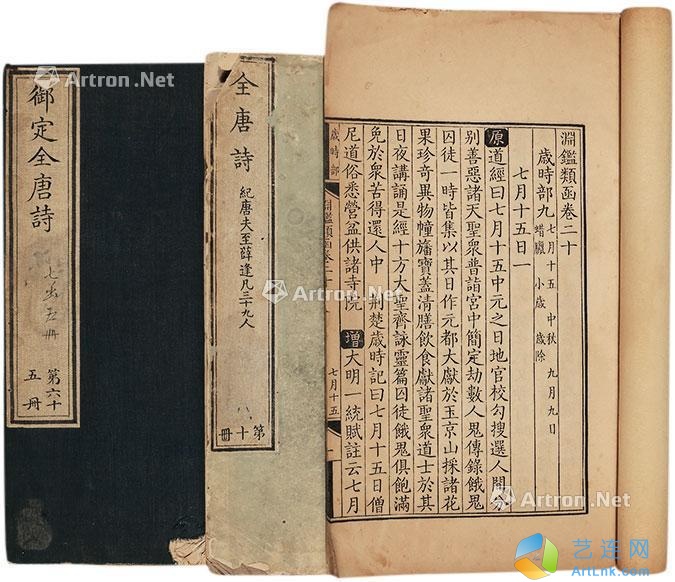 御定全唐詩
第六十
五冊
全唐詩
紀唐夫至薛逢凡三十九人
第十冊
淵鑑類函卷二十
歲時部九 七月十五 中秋 九月九日
蜡臘 小歲 歲除
七月十五日一
原道經曰七月十五中元之日地官校勾搜選人間分
別善惡諸天聖衆普詣宮中簡定劫數人鬼傳錄餓鬼
囚徒一時皆集以其日作元都大獻於玉京山採諸花
果珍奇異物幢旛寶蓋清膳飲食獻諸聖衆道士於其
日夜講誦是經十方大聖齊詠靈篇囚徒餓鬼俱飽滿
免於衆苦得還人中 荆楚歲時記曰七月十五日僧
尼道俗悉營盆供諸寺院 增大明一統賦註云七月
歲時部
淵鑑類函卷二十
七月十五
Artron.Net
Artron.Net
Artron.Net
Artron.Net
艺连网
ArtLnk.com